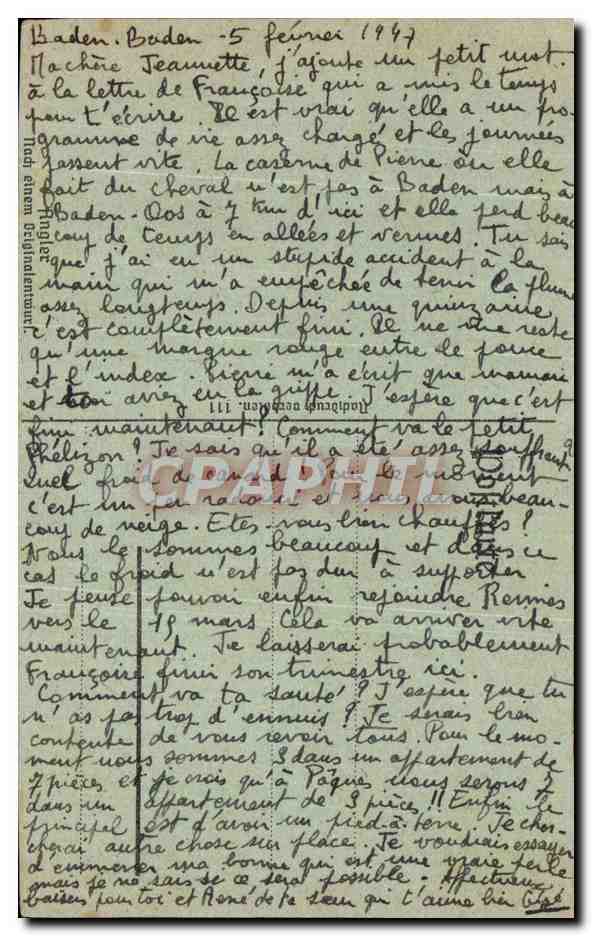 Baden-Baden - 5 février 1947
Ma chère Jeannette, j'ajoute un petit mot
à la lettre de Françoise qui a mis le temps
pour t'écrire. Il est vrai qu'elle a un pro-
gramme de vie assez chargé et les journées
passent vite. La caserne de Pierre où elle
fait du cheval n'est pas à Baden mais à
Baden-Oos à 7 km d'ici et elle perd beau
coup de temps en allées et venues. Tu sais
que j'ai eu un stupide accident à la
main qui m'a empêchée de tenir la plume
assez longtemps. Depuis une quinzaine
c'est complètement fini. Il ne me reste
qu'une marque rouge entre le pouce
et l'index. Pierre m'a écrit que maman
et toi aviez eu la grippe. J'espère que c'est
fini maintenant? Comment va le petit
Phélizon? Je sais qu'il a été assez souffrant?
Quel froid de canard! Pour le moment
c'est un peu radouci et nous avons beau-
coup de neige. Etes-vous bien chauffés?
Nous le sommes beaucoup et dans ce
cas le froid n'est pas dur à supporter
Je pense pouvoir enfin rejoindre Rennes
vers le 15 mars. Cela va arriver vite
maintenant. Je laisserai probablement
Françoise finir son trimestre ici.
Comment va ta santé? J'espère que tu
n'as pas trop d'ennuis? Je serais bien
contente de vous revoir tous. Pour le mo-
ment nous sommes 3 dans un appartement de
7 pièces et je crois qu'à Pâques nous serons 7
dans un appartement de 3 pièces!! Enfin le
principal est d'avoir un pied-à-terre. Je cher-
cherai autre chose sur place. Je voudrais essayer
d'emmener ma bonne qui est une vraie perle
mais je ne sais si ce sera possible. Affectueux
baisers pour toi et René de ta sœur qui t'aime bien
Nach einem Originalentwurf.
CPAPHIL